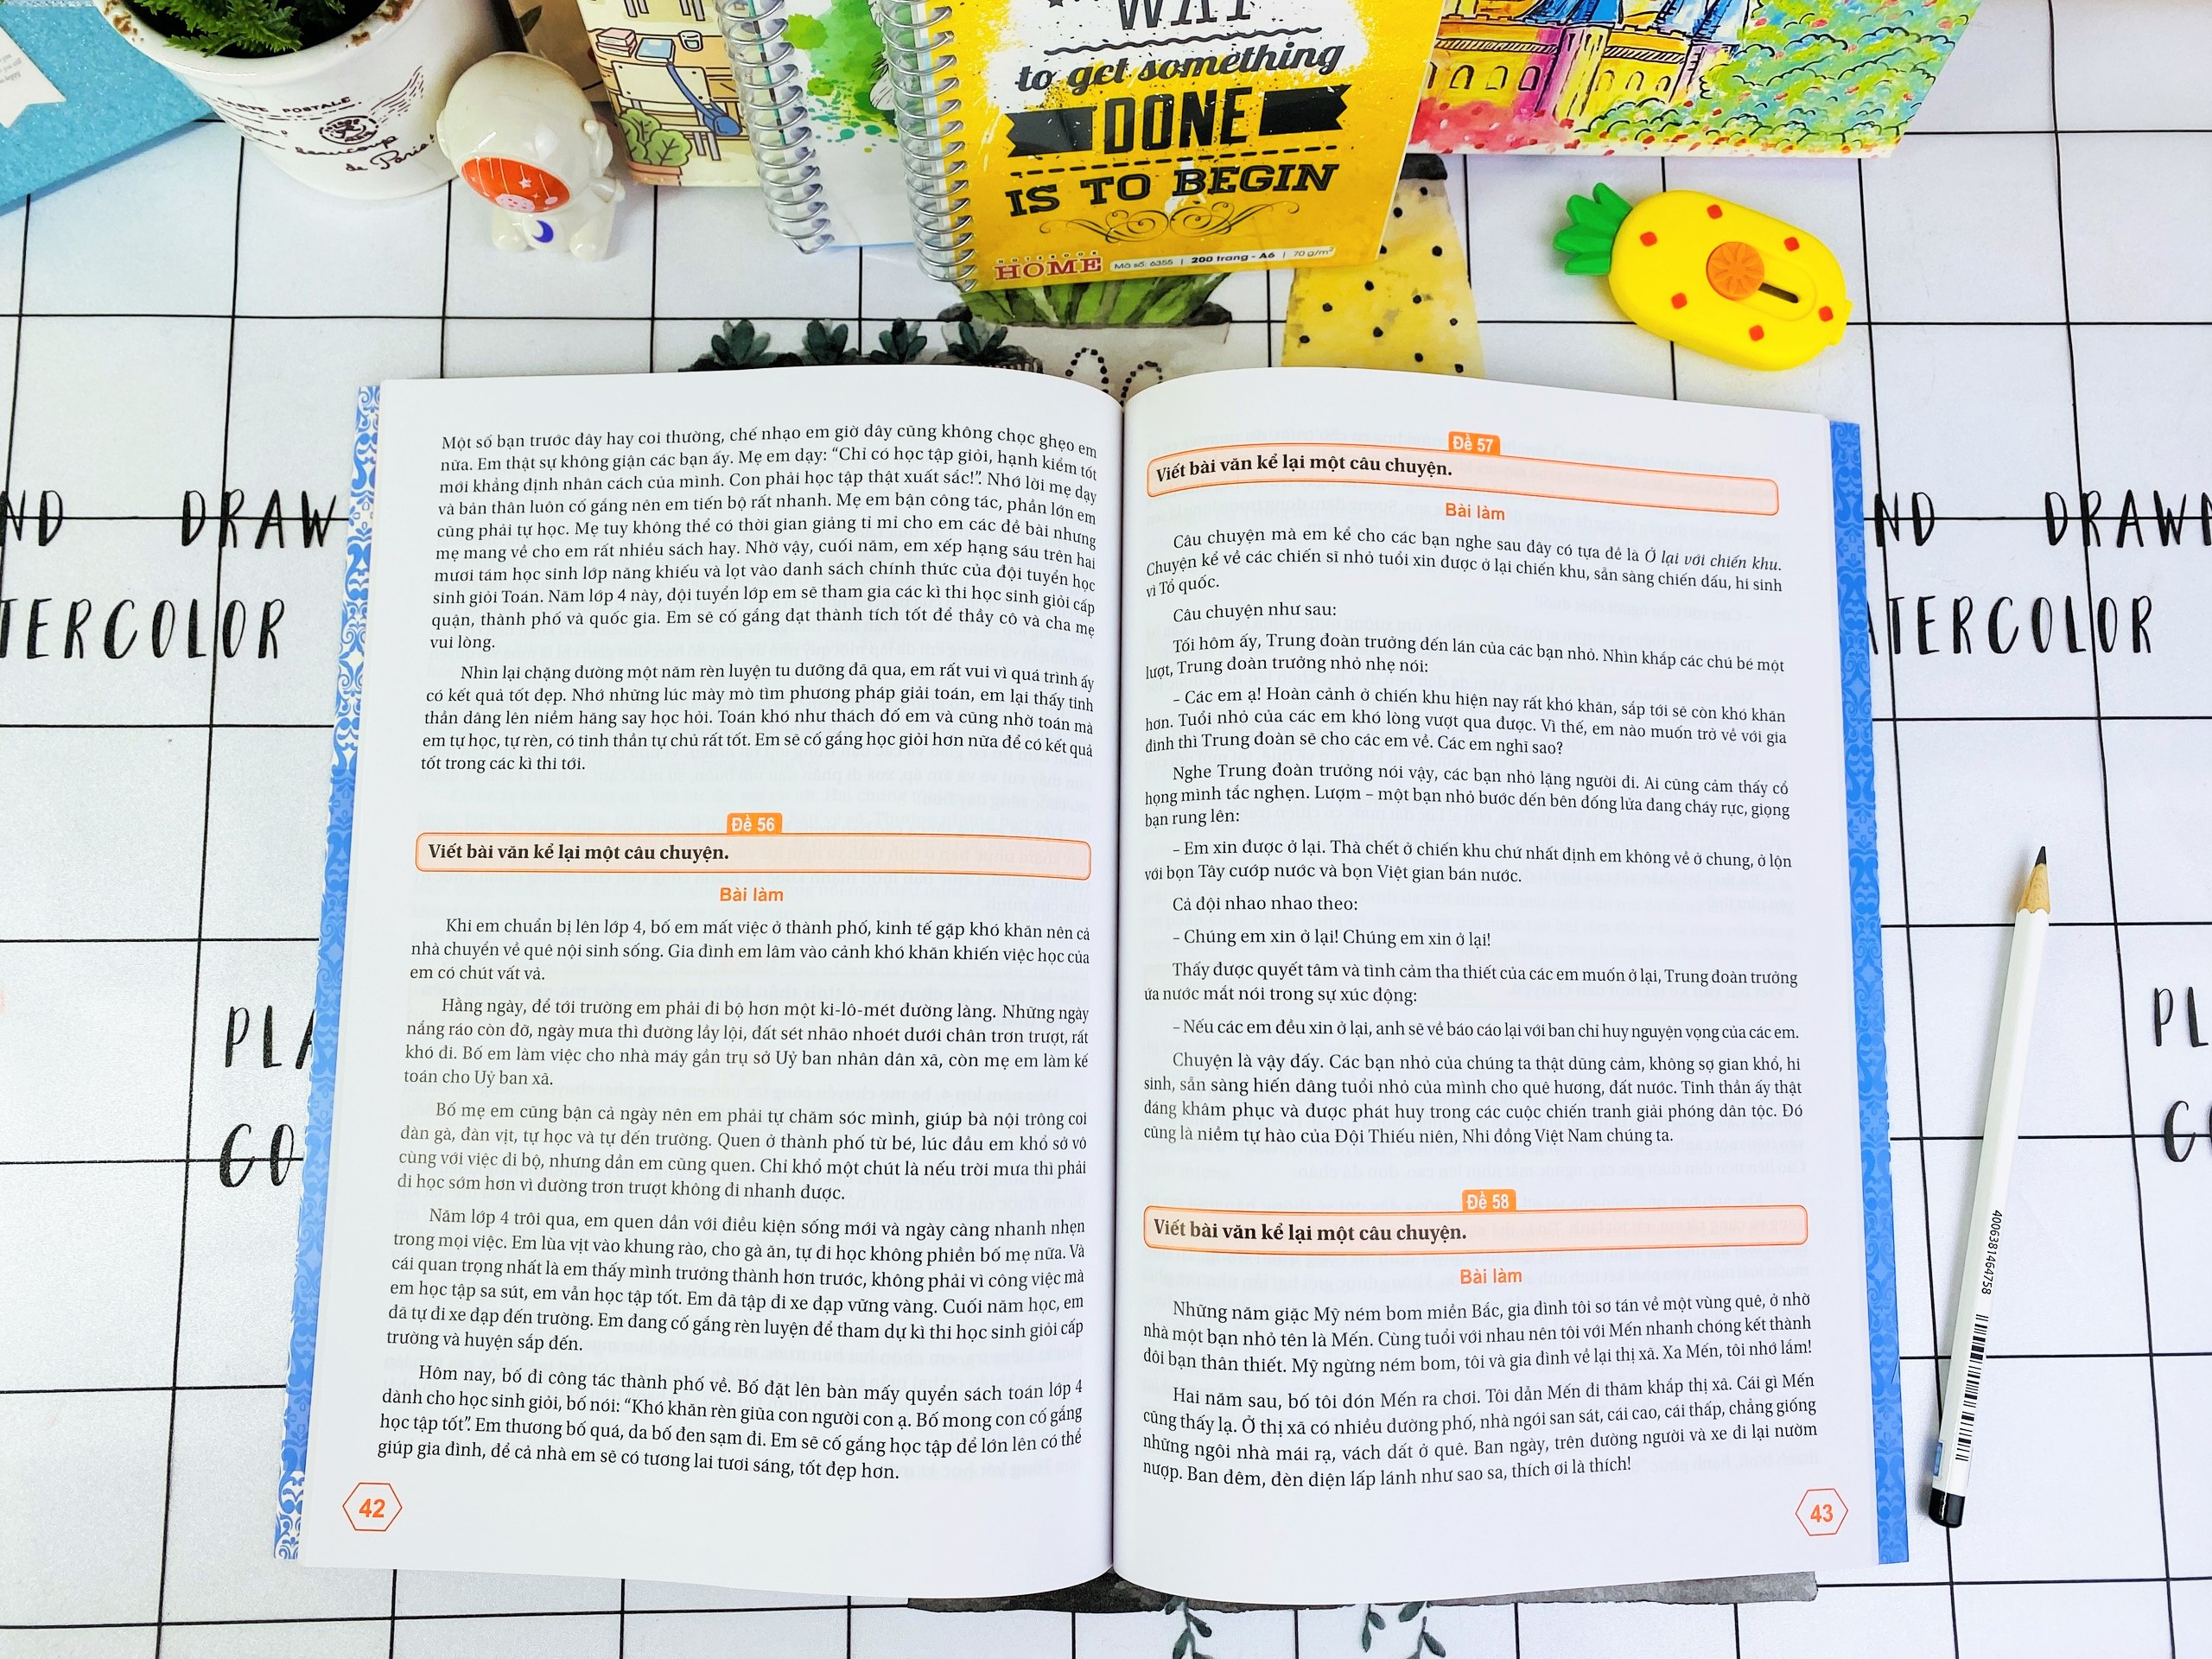 CARTE POSTALE
Beaucoup
de Paris!
WAY
to get something
DONE
IS TO BEGIN
NOTEBOOK
HOME Mã số: 6355 | 200 trang - A6 | 70 g/m²
ND DRAW
TERCOLOR
PLA
CO
Một số bạn trước đây hay coi thường, chế nhạo em giờ đây cũng không chọc ghẹo em
nữa. Em thật sự không giận các bạn ấy. Mẹ em dạy: “Chỉ có học tập giỏi, hạnh kiểm tốt
mới khẳng định nhân cách của mình. Con phải học tập thật xuất sắc!”. Nhớ lời mẹ dạy
và bản thân luôn cố gắng nên em tiến bộ rất nhanh. Mẹ em bận công tác, phần lớn em
cũng phải tự học. Mẹ tuy không thể có thời gian giảng tỉ mỉ cho em các đề bài nhưng
mẹ mang về cho em rất nhiều sách hay. Nhờ vậy, cuối năm, em xếp hạng sáu trên hai
mươi tám học sinh lớp năng khiếu và lọt vào danh sách chính thức của đội tuyển học
sinh giỏi Toán. Năm lớp 4 này, đội tuyển lớp em sẽ tham gia các kì thi học sinh giỏi cấp
quận, thành phố và quốc gia. Em sẽ cố gắng đạt thành tích tốt để thầy cô và cha mẹ
vui lòng.
Nhìn lại chặng đường một năm rèn luyện tu dưỡng đã qua, em rất vui vì quá trình ấy
có kết quả tốt đẹp. Nhớ những lúc mày mò tìm phương pháp giải toán, em lại thấy tinh
thần dâng lên niềm hăng say học hỏi. Toán khó như thách đố em và cũng nhờ toán mà
em tự học, tự rèn, có tinh thần tự chủ rất tốt. Em sẽ cố gắng học giỏi hơn nữa để có kết quả
tốt trong các kì thi tới.
Đề 56
Viết bài văn kể lại một câu chuyện.
Bài làm
Khi em chuẩn bị lên lớp 4, bố em mất việc ở thành phố, kinh tế gặp khó khăn nên cả
nhà chuyển về quê nội sinh sống. Gia đình em lâm vào cảnh khó khăn khiến việc học của
em có chút vất vả.
Hằng ngày, để tới trường em phải đi bộ hơn một ki-lô-mét đường làng. Những ngày
nắng ráo còn đỡ, ngày mưa thì đường lầy lội, đất sét nhão nhoét dưới chân trơn trượt, rất
khó đi. Bố em làm việc cho nhà máy gần trụ sở Uỷ ban nhân dân xã, còn mẹ em làm kế
toán cho Uỷ ban xã.
Bố mẹ em cũng bận cả ngày nên em phải tự chăm sóc mình, giúp bà nội trông coi
đàn gà, đàn vịt, tự học và tự đến trường. Quen ở thành phố từ bé, lúc đầu em khổ sở vô
cùng với việc đi bộ, nhưng dần em cũng quen. Chỉ khổ một chút là nếu trời mưa thì phải
đi học sớm hơn vì đường trơn trượt không đi nhanh được.
Năm lớp 4 trôi qua, em quen dần với điều kiện sống mới và ngày càng nhanh nhẹn
trong mọi việc. Em lùa vịt vào khung rào, cho gà ăn, tự đi học không phiền bố mẹ nữa. Và
cái quan trọng nhất là em thấy mình trưởng thành hơn trước, không phải vì công việc mà
em học tập sa sút, em vẫn học tập tốt. Em đã tập đi xe đạp vững vàng. Cuối năm học, em
đã tự đi xe đạp đến trường. Em đang cố gắng rèn luyện để tham dự kì thi học sinh giỏi cấp
trường và huyện sắp đến.
Hôm nay, bố đi công tác thành phố về. Bố đặt lên bàn mấy quyển sách toán lớp 4
dành cho học sinh giỏi, bố nói: “Khó khăn rèn giũa con người con ạ. Bố mong con cố gắng
học tập tốt”. Em thương bố quá, da bố đen sạm đi. Em sẽ cố gắng học tập để lớn lên có thể
giúp gia đình, để cả nhà em sẽ có tương lai tươi sáng, tốt đẹp hơn.
42
Đề 57
Viết bài văn kể lại một câu chuyện.
Bài làm
Câu chuyện mà em kể cho các bạn nghe sau đây có tựa đề là Ở lại với chiến khu.
Chuyện kể về các chiến sĩ nhỏ tuổi xin được ở lại chiến khu, sẵn sàng chiến đấu, hi sinh
vì Tổ quốc.
Câu chuyện như sau:
Tối hôm ấy, Trung đoàn trưởng đến lán của các bạn nhỏ. Nhìn khắp các chú bé một
lượt, Trung đoàn trưởng nhỏ nhẹ nói:
– Các em ạ! Hoàn cảnh ở chiến khu hiện nay rất khó khăn, sắp tới sẽ còn khó khăn
hơn. Tuổi nhỏ của các em khó lòng vượt qua được. Vì thế, em nào muốn trở về với gia
đình thì Trung đoàn sẽ cho các em về. Các em nghĩ sao?
Nghe Trung đoàn trưởng nói vậy, các bạn nhỏ lặng người đi. Ai cũng cảm thấy cổ
họng mình tắc nghẹn. Lượm – một bạn nhỏ bước đến bên đống lửa đang cháy rực, giọng
bạn rung lên:
– Em xin được ở lại. Thà chết ở chiến khu chứ nhất định em không về ở chung, ở lộn
với bọn Tây cướp nước và bọn Việt gian bán nước.
Cả đội nhao nhao theo:
– Chúng em xin ở lại! Chúng em xin ở lại!
Thấy được quyết tâm và tình cảm tha thiết của các em muốn ở lại, Trung đoàn trưởng
ứa nước mắt nói trong sự xúc động:
– Nếu các em đều xin ở lại, anh sẽ về báo cáo lại với ban chỉ huy nguyện vọng của các em.
Chuyện là vậy đấy. Các bạn nhỏ của chúng ta thật dũng cảm, không sợ gian khổ, hi
sinh, sẵn sàng hiến dâng tuổi nhỏ của mình cho quê hương, đất nước. Tinh thần ấy thật
đáng khâm phục và được phát huy trong các cuộc chiến tranh giải phóng dân tộc. Đó
cũng là niềm tự hào của Đội Thiếu niên, Nhi đồng Việt Nam chúng ta.
Đề 58
Viết bài văn kể lại một câu chuyện.
Bài làm
Những năm giặc Mỹ ném bom miền Bắc, gia đình tôi sơ tán về một vùng quê, ở nhờ
nhà một bạn nhỏ tên là Mến. Cùng tuổi với nhau nên tôi với Mến nhanh chóng kết thành
đôi bạn thân thiết. Mỹ ngừng ném bom, tôi và gia đình về lại thị xã. Xa Mến, tôi nhớ lắm!
Hai năm sau, bố tôi đón Mến ra chơi. Tôi dẫn Mến đi thăm khắp thị xã. Cái gì Mến
cũng thấy lạ. Ở thị xã có nhiều đường phố, nhà ngói san sát, cái cao, cái thấp, chẳng giống
những ngôi nhà mái rạ, vách đất ở quê. Ban ngày, trên đường người và xe đi lại nườm
nượp. Ban đêm, đèn điện lấp lánh như sao sa, thích ơi là thích!
43
ND DRAWN
ATERCOLOR
PL
C
4006381464758